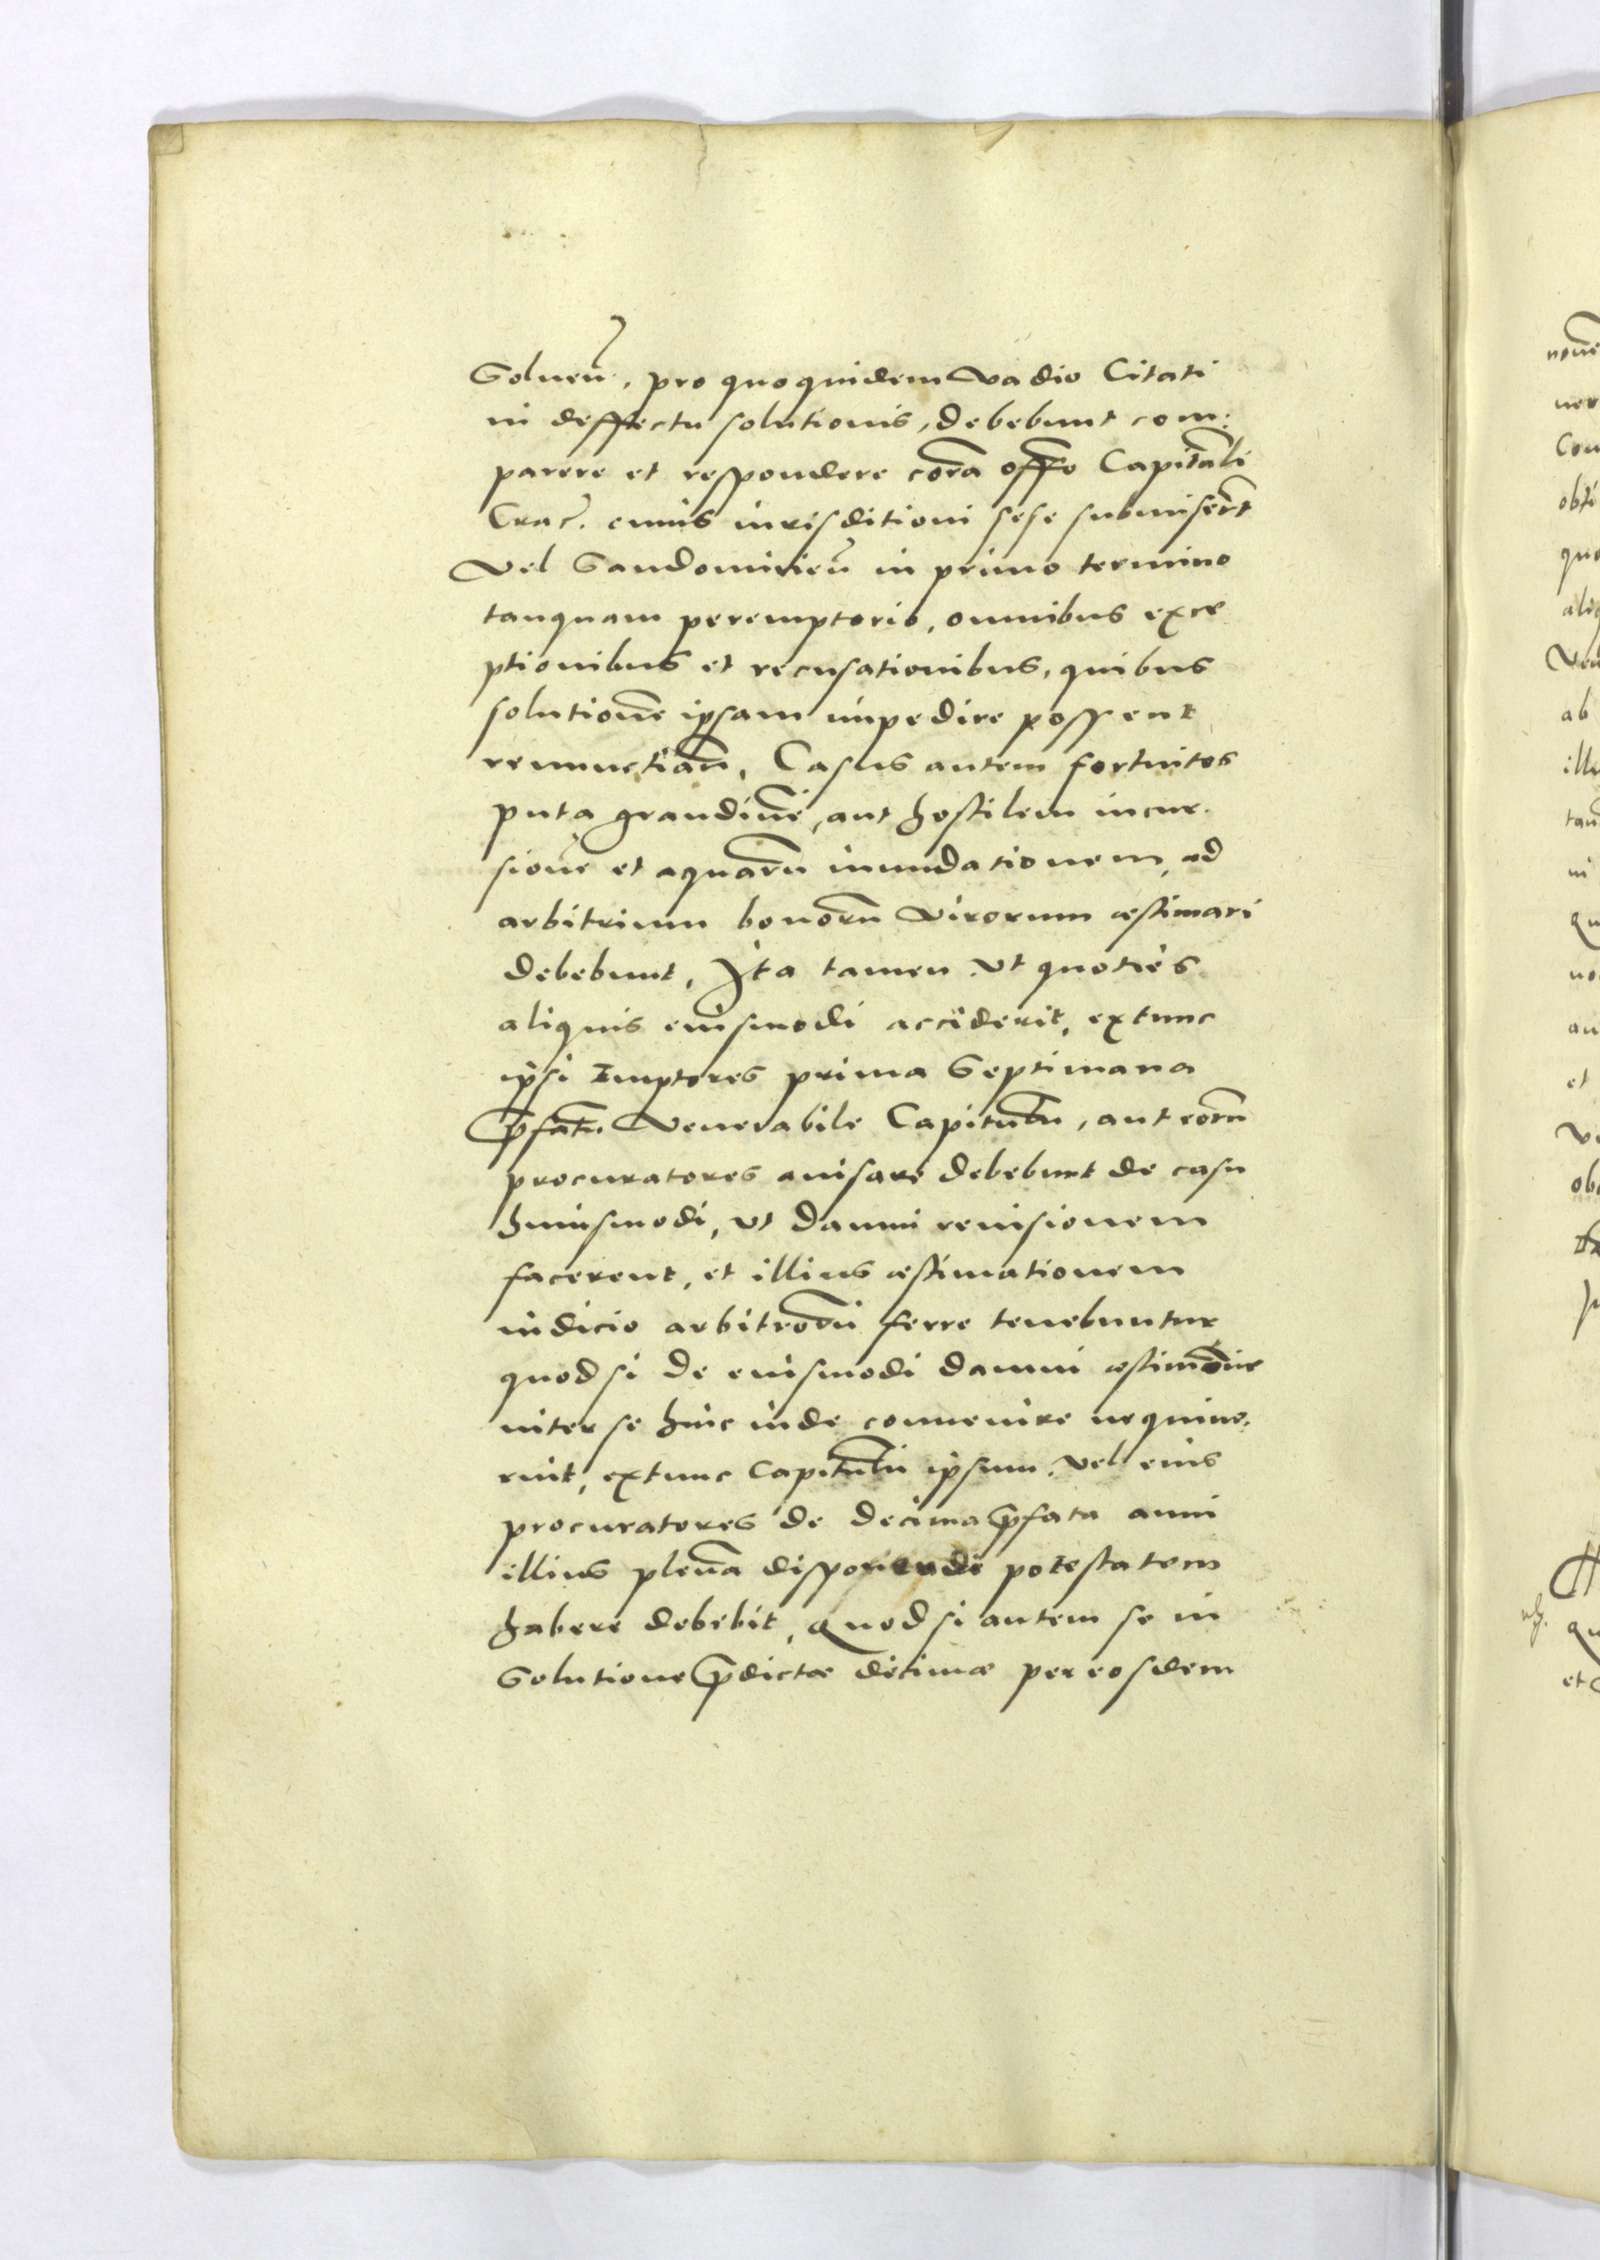 Soluen̄, pro quoquidem vadio Citati
in deffectu solutionis, debebunt com:
parere et respondere cora̅ offo̅ Capita̅li
Crac̅. cuius iurisditioni sese submiser̅t
vel Sandomirien̄ in primo termino
tanquam peremptorio, omnibus exce
ptionibus et recusationibus, quibus
solutione̅ ipsam impedire possent
renunctian̄, Casus autem fortuitos
puta grandine̅, aut hostilem incur.
sione̅ et aquaru̅ inundationem, ad
arbitrium bonoru̅ virorum æstimari
debebunt, Ita tamen ut quoties
aliquis eiusmodi acciderit, extunc
ipsi Emptores prima Septimana
p̅fatu̅ Venerabile Capitulu̅, aut eoru̅
procuratores auisare debebunt de casu
huiusmodi, ut damni reuisionem
facerent, et illius æstimationem
iudicio arbitroru̅ ferre tenebuntur
quod si de eiusmodi damni æstimo̅ne
inter se hinc inde conuenire nequiue.
rint, extunc Capitulu̅ ipsum, vel eius
procuratores de decima p̅fata anni
illius plena̅ disponendi potestatem
habere debebit, Quod si autem se in
Solutione p̅dictæ decimæ per eosdem